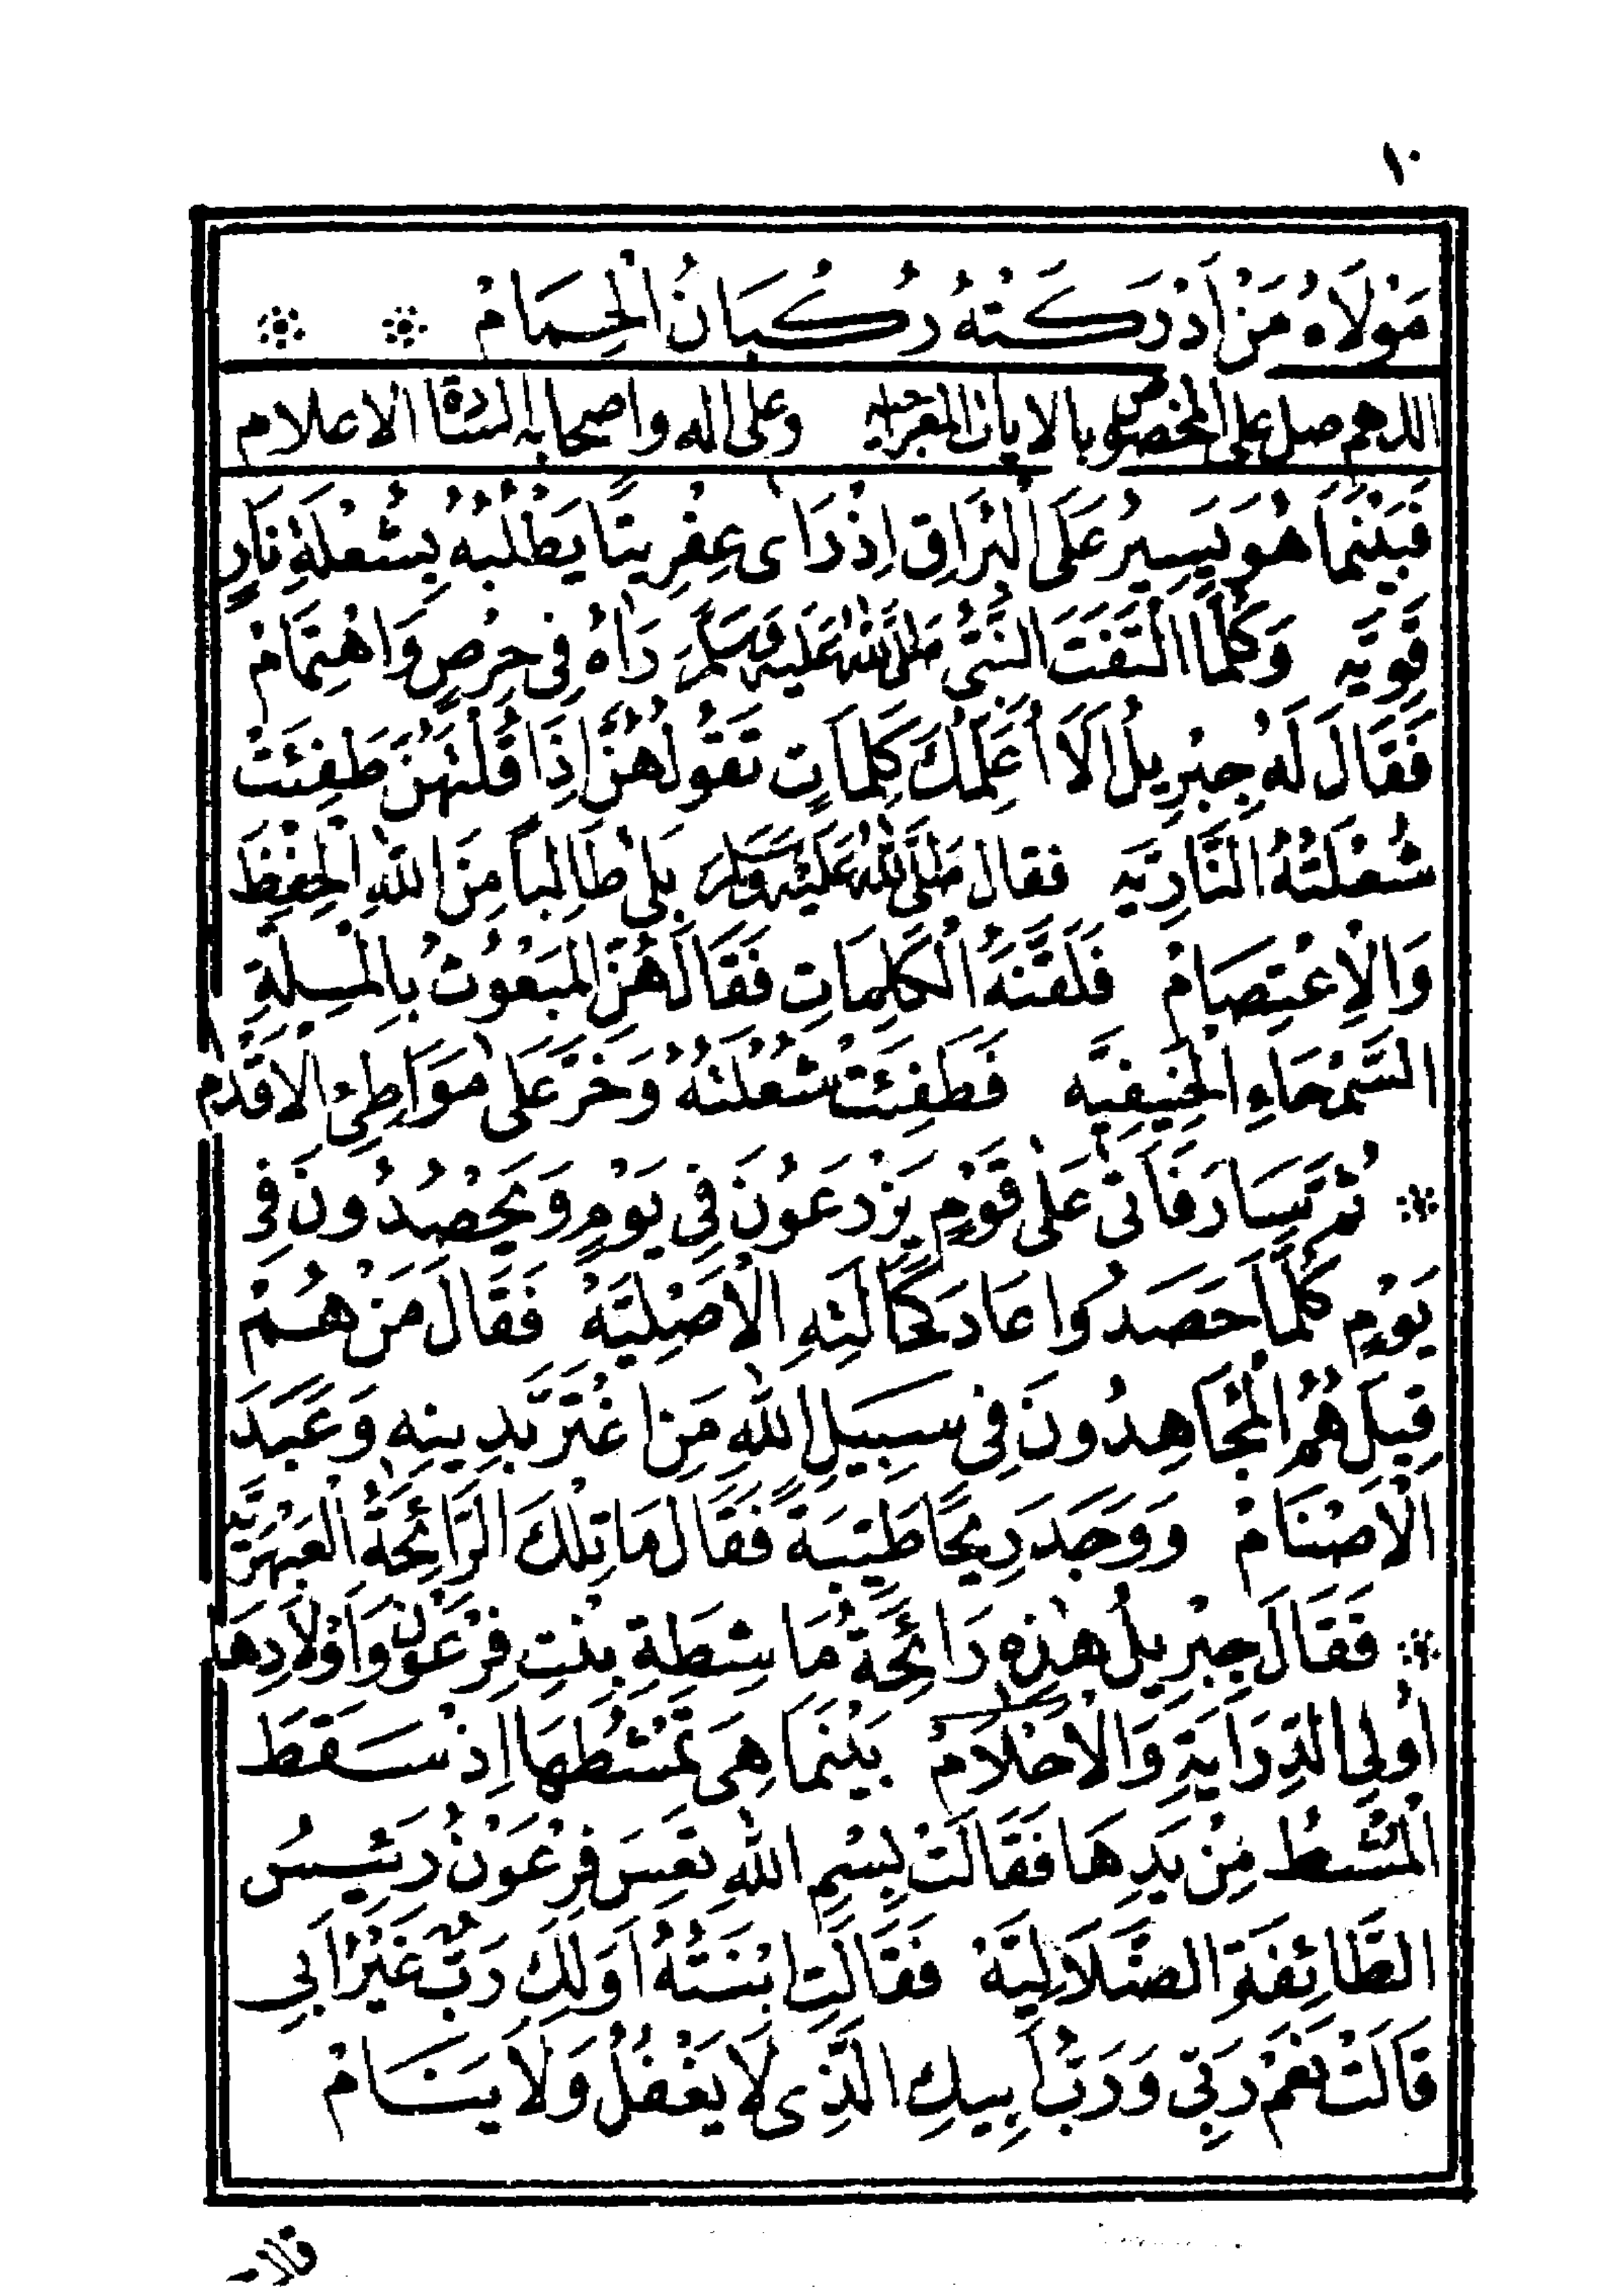 ١٠
مَوْلَاهُ مَنْ اَدْرَكَتْهُ رُكْبَانُ الْحِمَامْ
اللهم صل على المخصوص بالايات المعراجيه وعلى اله واصحابه السادة الاعلام
فَبَيْنَمَا هُوَ يَسِيرُ عَلَى الْبُرَاقِ اِذْ رَاٰى عِفْرِيتًا يَطْلُبُهُ بِشُعْلَةِ نَارٍ
قَوِيَّه وَكُلَّمَا الْتَفَتَ النَّبِيُّ صَلَّى اللّٰهُ عَلَيْهِ وَسَلَّمَ رَاٰهُ فِى حِرْصٍ وَاهْتِمَامْ
فَقَالَ لَهُ جِبْرِيلُ اَلَا اُعَلِّمُكَ كَلِمَاتٍ تَقُولُهُنَّ اِذَا قُلْتَهُنَّ طَفِئَتْ
شُعْلَتُهُ النَّارِيَّه فقال صَلَّى اللّٰهُ عَلَيْهِ وَسَلَّمَ بَلٰى طَالِبًا مِنَ اللّٰهِ الْحِفْظَ
وَالْاِعْتِصَامْ فَلَقَّنَهُ الْكَلِمَاتِ فَقَالَهُنَّ الْمَبْعُوثُ بِالْمِلَّةِ
السَّمْحَاءِ الْحَنِيفِيَّه فَطَفِئَتْ شُعْلَتُهُ وَخَرَّ عَلٰى مَوَاطِئِ الْاَقْدَام
ثُمَّ سَارَ فَاَتٰى عَلٰى قَوْمٍ يَزْرَعُونَ فِى يَوْمٍ وَيَحْصُدُونَ فِى
يَوْمٍ كُلَّمَا حَصَدُوا عَادَ كَحَالَتِهِ الْاَصْلِيَّهْ فَقَالَ مَنْ هُمْ
قِيلَ هُمُ الْمُجَاهِدُونَ فِى سَبِيلِ اللّٰهِ مَنِ اغْتَرَّ بِدِينِهِ وَعَبَدَ
الْاَصْنَامْ وَوَجَدَ رِيحًا طَيِّبَةً فَقَالَ مَا تِلْكَ الرَّائِحَةُ الْعَبْهَرِيَّه
فَقَالَ جِبْرِيلُ هٰذِهِ رَائِحَةُ مَاشِطَةِ بِنْتِ فِرْعَوْنَ وَاَوْلَادِهَا
اُولِى الدِّرَايَةِ وَالْاَحْلَامْ بَيْنَمَا هِىَ تَمْشُطُهَا اِذْ سَقَطَ
الْمُشْطُ مِنْ يَدِهَا فَقَالَتْ بِسْمِ اللّٰهِ تَعِسَ فِرْعَوْنُ رَئِيسُ
الطَّائِفَةِ الضَّلَالِيَّهْ فَقَالَتِ ابْنَتُهُ اَوَلَكِ رَبٌّ غَيْرُ اَبِى
قَالَتْ نَعَمْ رَبِّى وَرَبُّ اَبِيكِ الَّذِى لَا يَغْفُلُ وَلَا يَنَامْ
قالت